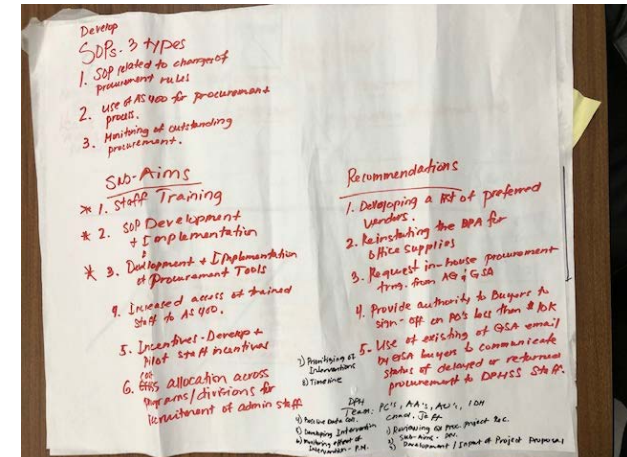 Develop
SOPs - 3 types
1. SOP related to changes of
procurement rules
2. Use of AS400 for procurement
process.
3. Monitoring of outstanding
procurement.
Sub-Aims
* 1. Staff Training
* 2. SOP Development
+ Implementation
* 3. Development + Implementation
of Procurement Tools
4. Increased access of trained
staff to AS400.
5. Incentives - Develop +
Pilot staff incentives
6. allocation across
programs/divisions for
recruitment of admin staff
Recommendations
1. Developing a list of preferred
vendors.
2. Reinstating the BPA for
office supplies
3. Request in-house procurement
trng. from AG & GSA
4. Provide authority to Buyers to
sign-off on PO's less than $10K
5. Use of existing of GSA email
by GSA buyers to communicate
status of delayed or returned
procurement to DPHSS Staff.
7) Prioritizing of
Interventions
8) Timeline
DPH
Team: PC's, AA's, AO's,
4) Baseline Data
5) Developing Intervention
6) Monitoring effect of
Intervention - P.M.
1) Reviewing Proc. Project
2) Sub-Aims - Dev.
3) Development / Input of Project Proposal